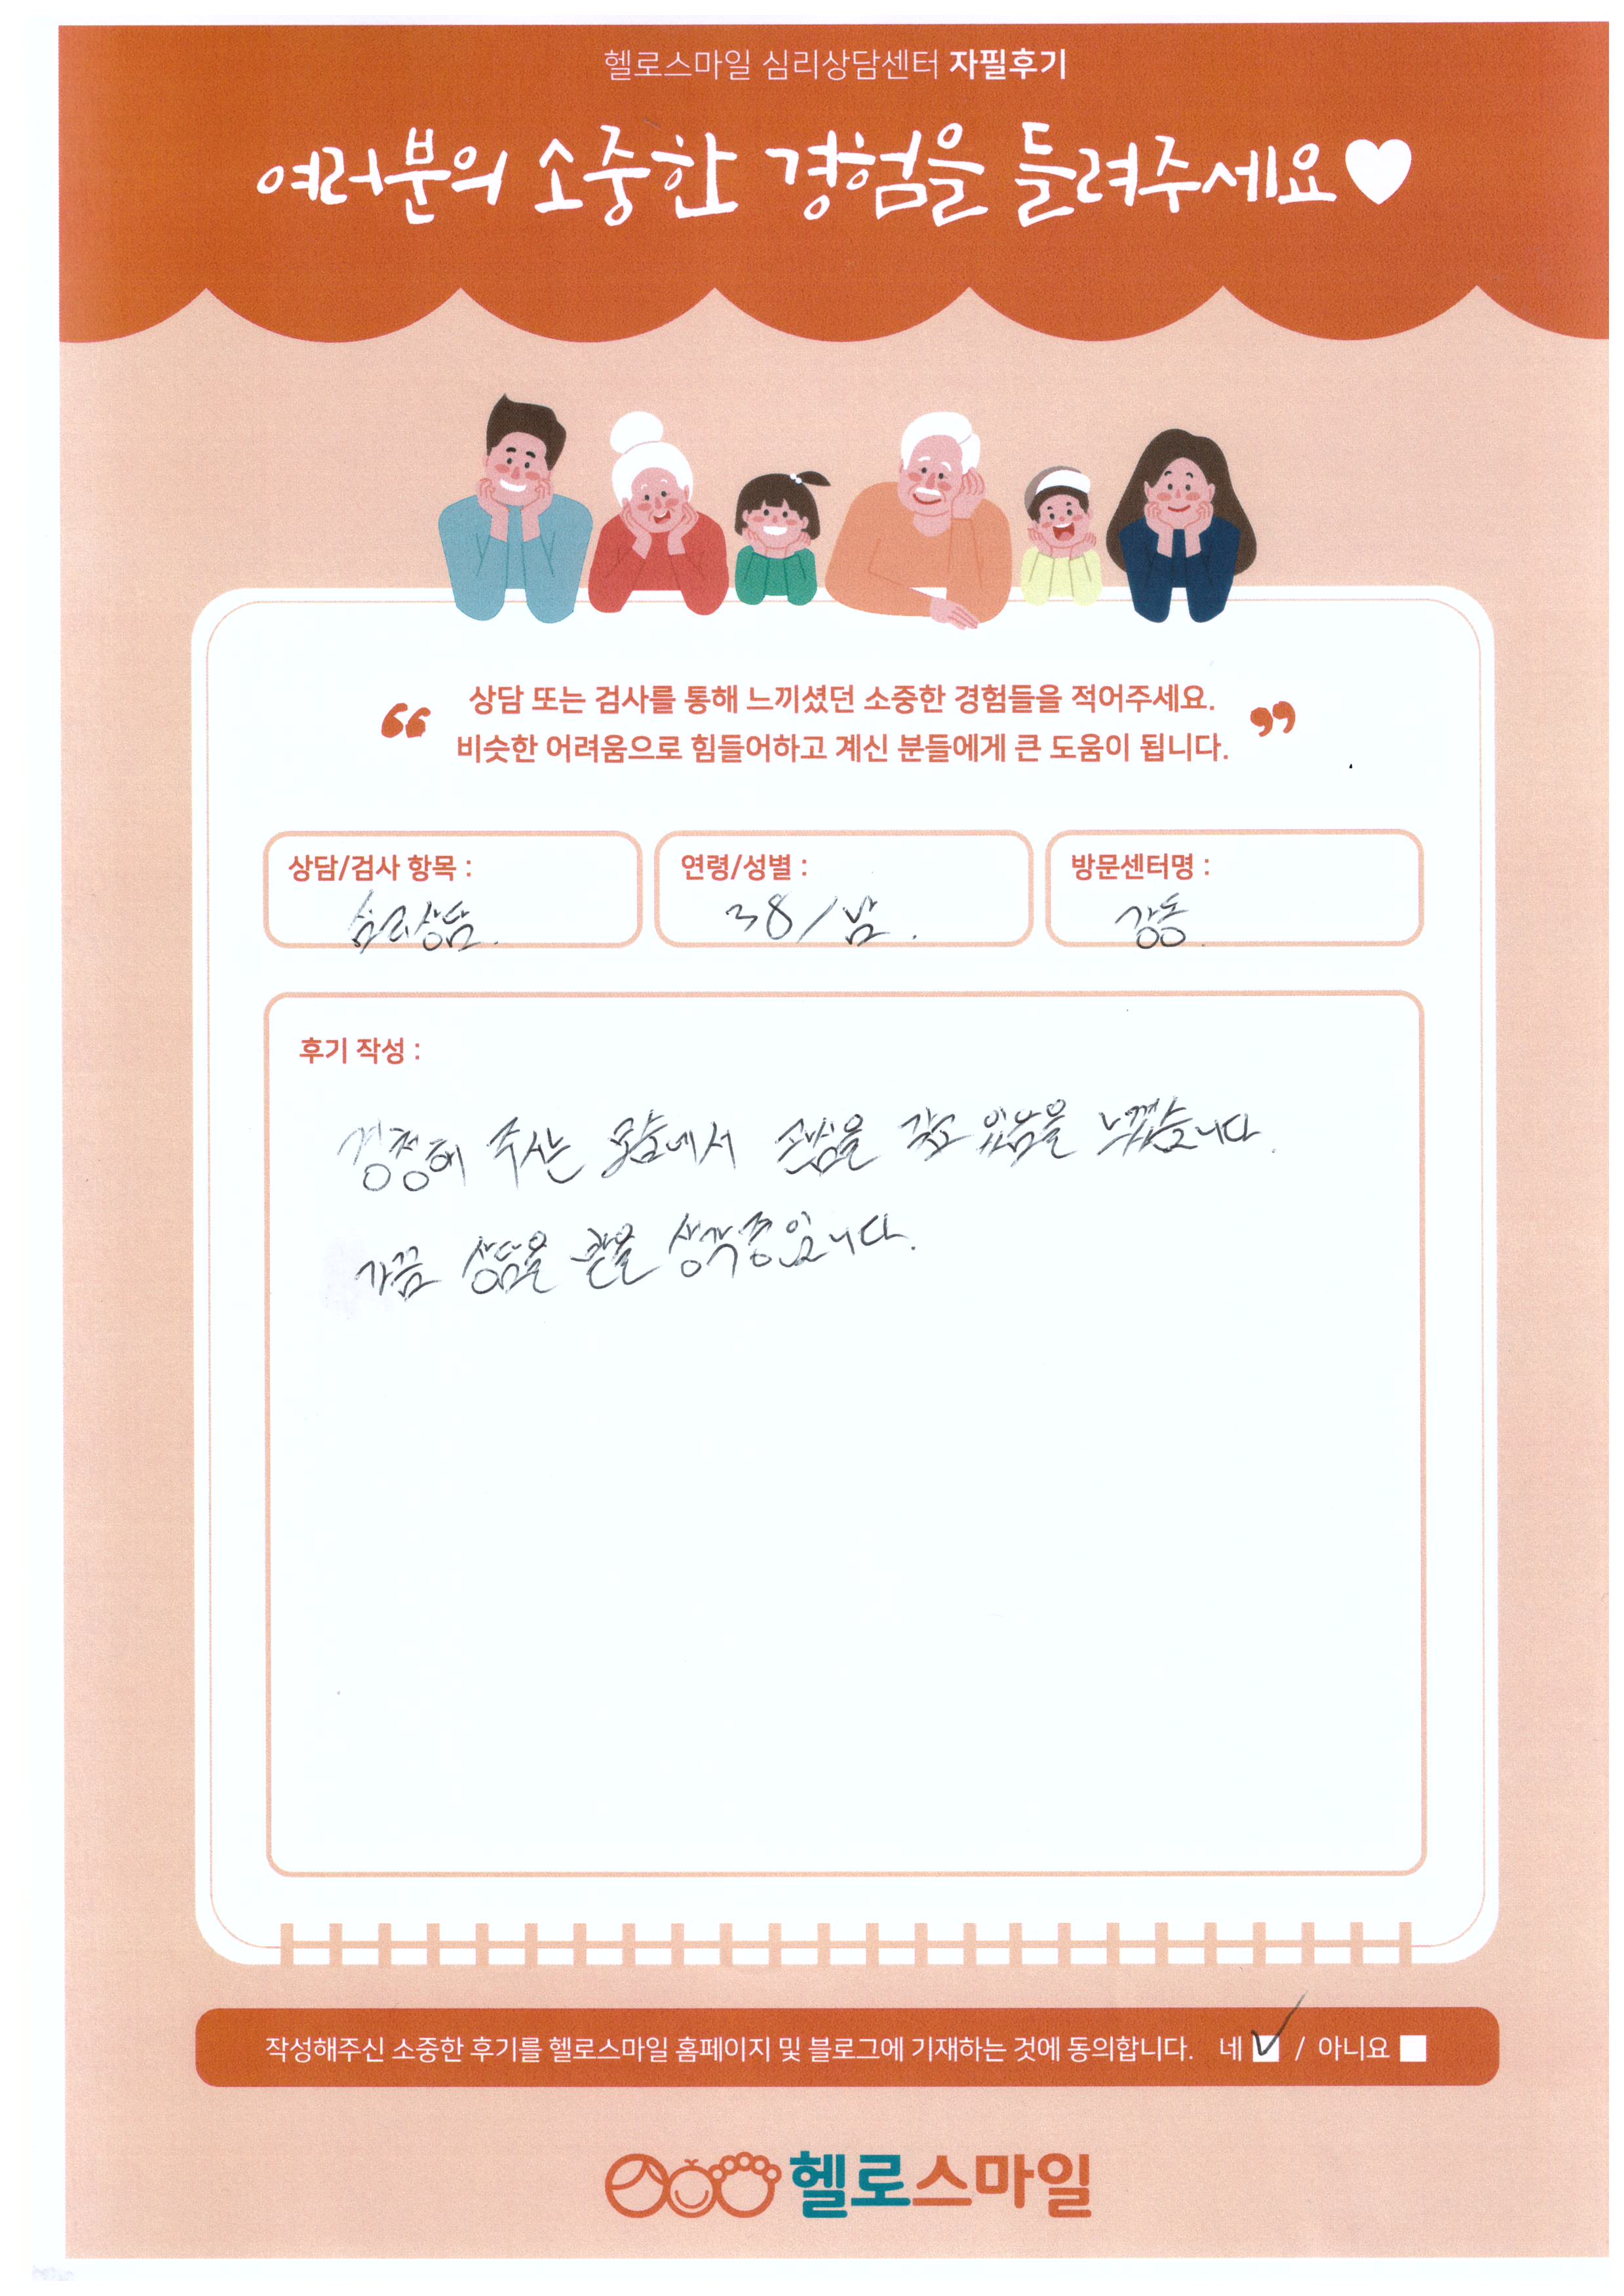 헬로스마일 심리상담센터 자필후기
여러분의 소중한 경험을 들려주세요
“ 상담 또는 검사를 통해 느끼셨던 소중한 경험들을 적어주세요. ”
비슷한 어려움으로 힘들어하고 계신 분들에게 큰 도움이 됩니다.
상담/검사 항목 :
심리상담.
연령/성별 :
38/남.
방문센터명 :
강동.
후기 작성 :
걱정해 주시는 모습에서 관심을 갖고 있음을 느꼈습니다.
가끔 상담을 받을 생각중입니다.
작성해주신 소중한 후기를 헬로스마일 홈페이지 및 블로그에 기재하는 것에 동의합니다. 네 / 아니요
헬로스마일